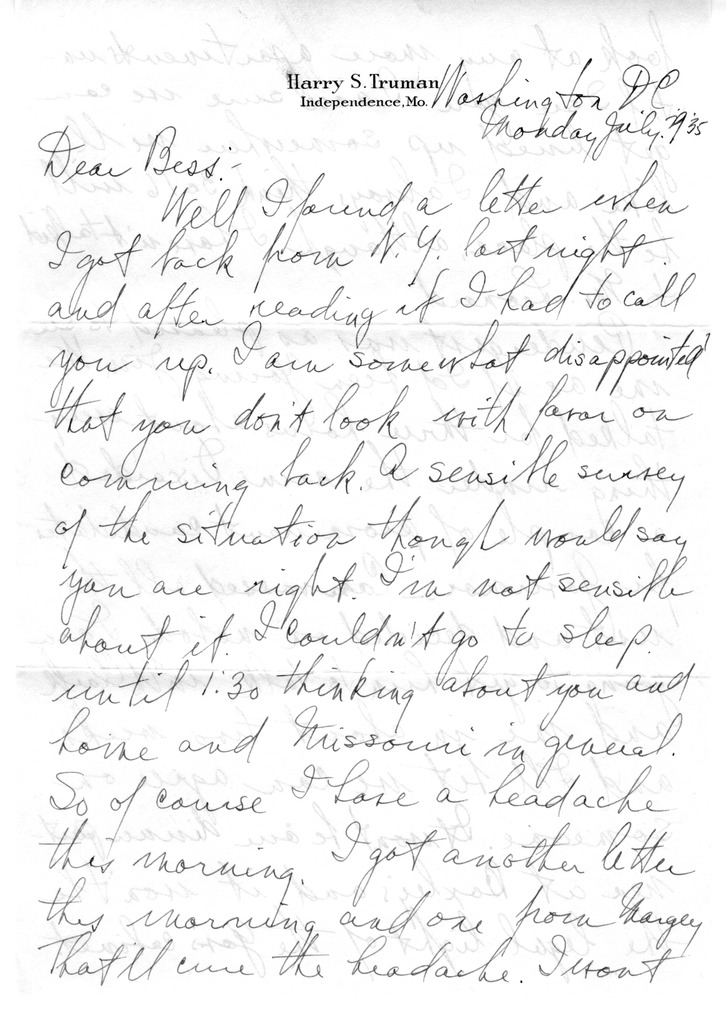 Harry S. Truman
Independence, Mo.
Washington DC
Monday July 29 '35
Dear Bess:-
Well I found a letter when
I got back from N.Y. last night
and after reading it I had to call
you up. I am somewhat disappointed
that you don't look with favor on
comming back. A sensible survey
of the situation though would say
you are right. I'm not sensible
about it. I couldn't go to sleep
until 1:30 thinking about you and
home and Missouri in general.
So of course I have a headache
this morning. I got another letter
this morning and one from Margey
That'll cure the headache. I won't